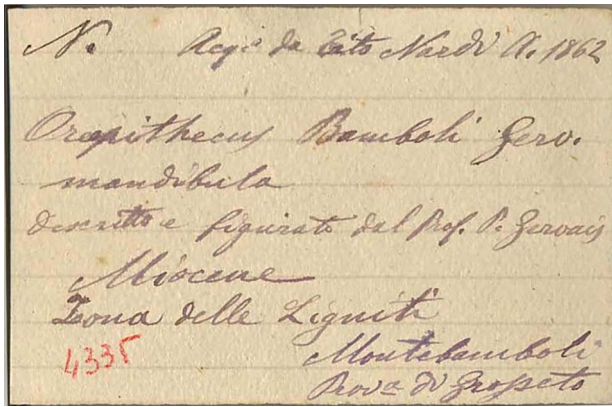 N. Acq. da Tito Nardi A. 1862
Oreopithecus Bamboli Gerv.
mandibula
descritto e figurato dal Prof. P. Gervais
Miocene
Zona delle Ligniti
4335
Montebamboli
Prov.a di Grosseto